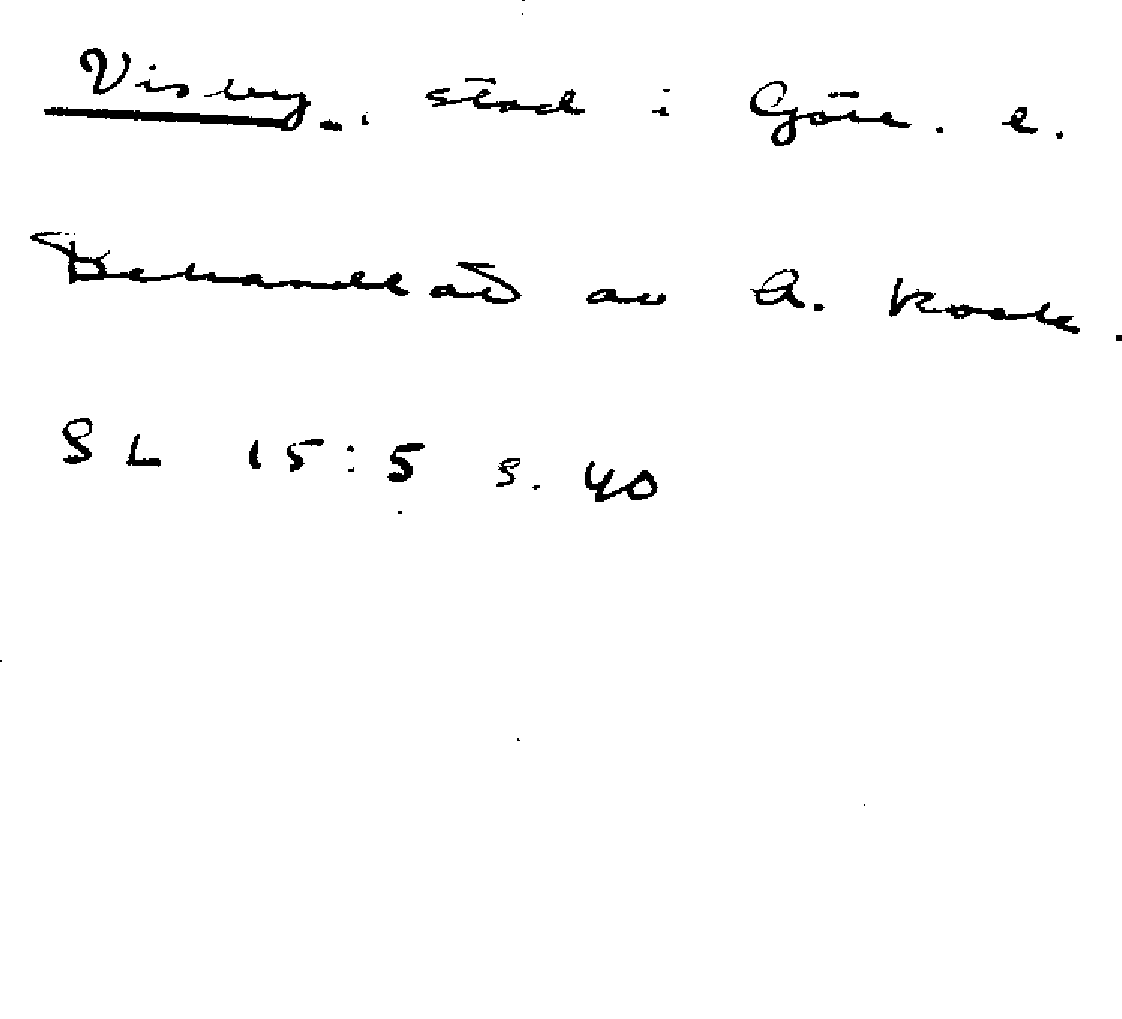 Visby, stad i Götl. l.
Behandlat av A. Kock.
SL 15:5 s. 40